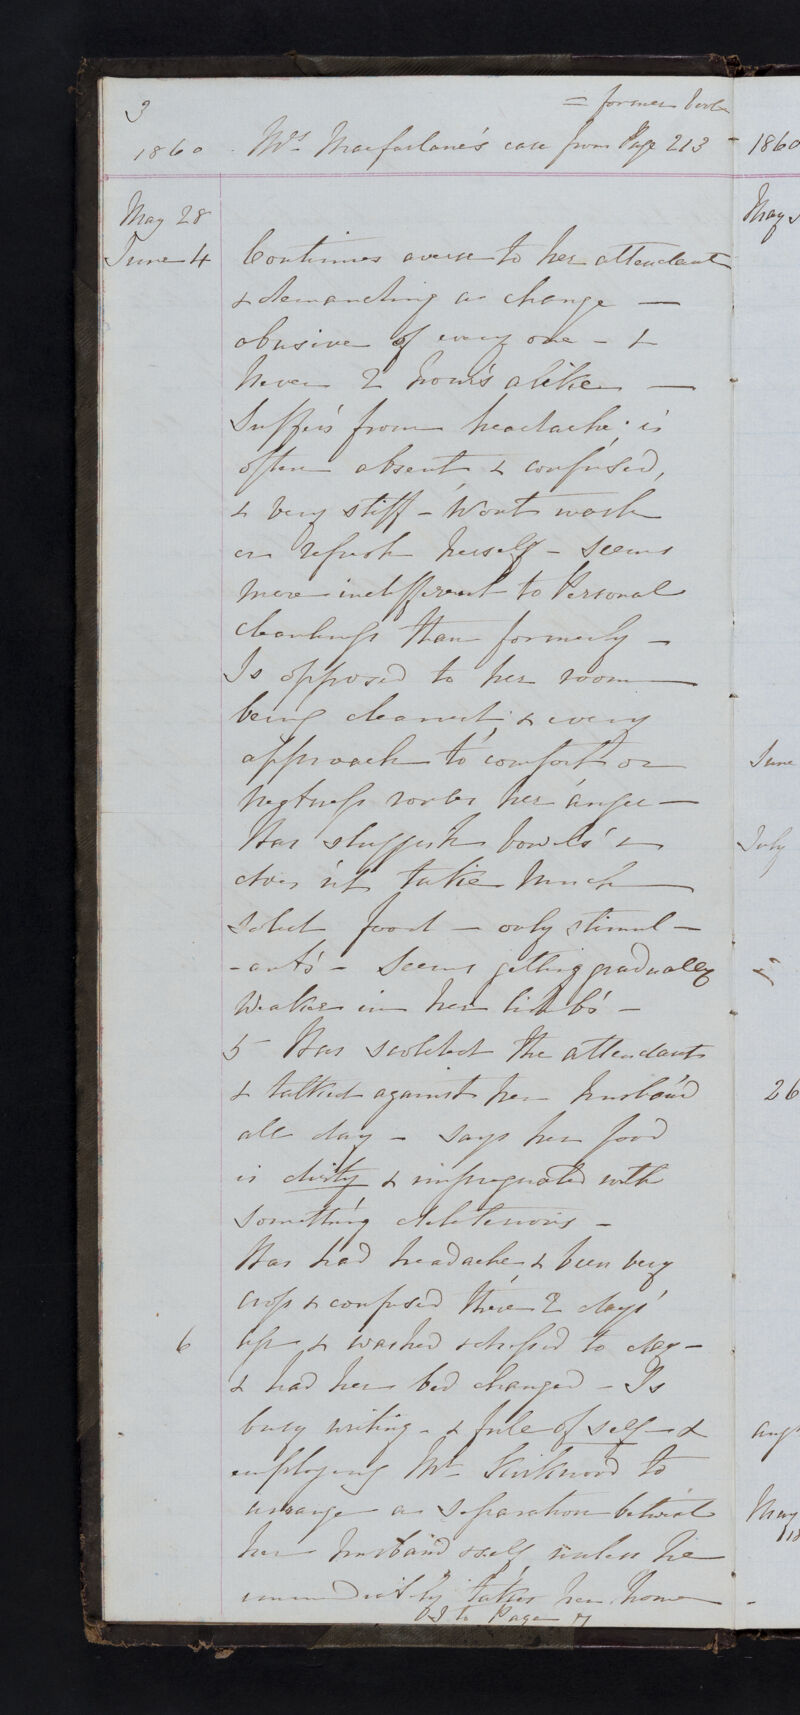 3
= former book
1860 . Mrs Macfarlane's case from Page 213 - 1860
May 28
June 4 Continues averse to her attendant
& demanding a change —
abusive of every one - &
never 2 hours alike —
Suffers from headache; is
often absent & confused,
& very stiff - Wont wash
or refresh herself - seems
more indifferent to Personal
cleanliness than formerly -
Is opposed to her room
being cleaned, & every
approach to comfort or
neatness rouses her anger -
Has sluggish bowels &
does n't take much
solid food - only stimul-
-ants - Seems getting gradually
weaker in her limbs -
5 Has scolded the attendants
& talked against her husband
all day - says her food
is dirty & impregnated with
something deleterious -
Has had headache & been very
cross & confused these 2 days
6 up & washed & dressed to day -
& had her bed changed - Is
busy writing - & full of self - &
employing Mr Kirkwood to
arrange a separation betwixt
her husband & self unless he
immediately takes her home
To Page 7
May
June
July
26
Augt
May